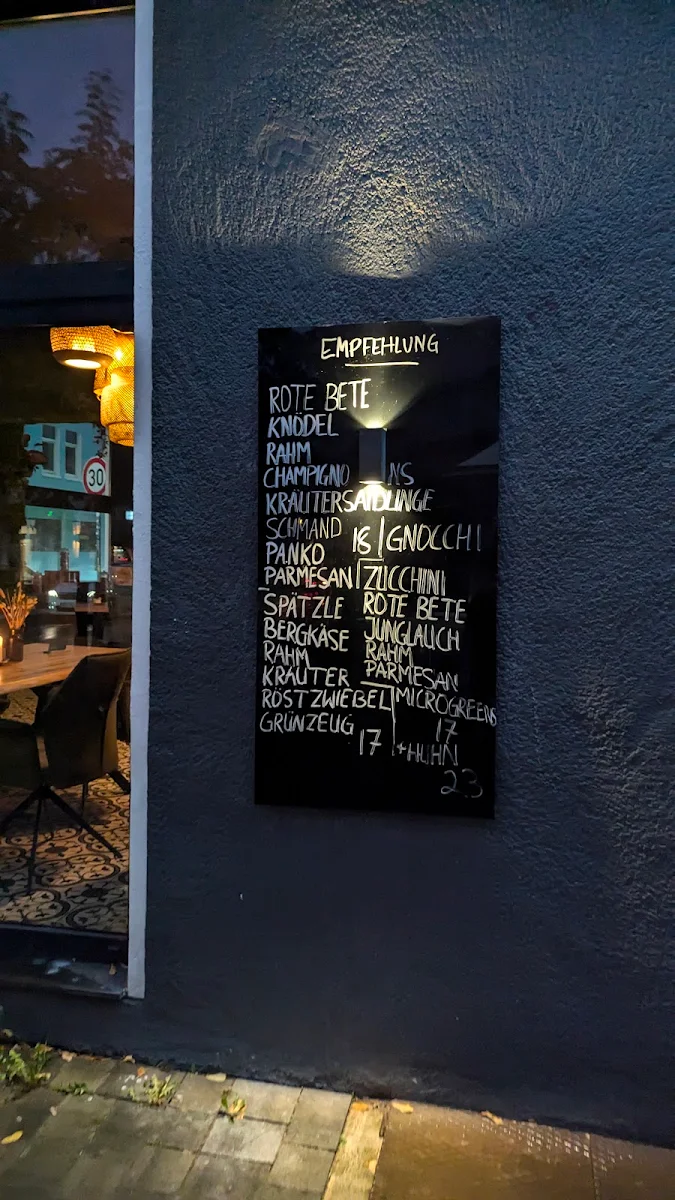 EMPFEHLUNG
ROTE BETE
KNÖDEL
RAHM
CHAMPIGNONS
KRÄUTERSAIDLINGE
SCHMAND
PANKO
PARMESAN
18
SPÄTZLE
BERGKÄSE
RAHM
KRÄUTER
RÖSTZWIEBEL
GRÜNZEUG
17
GNOCCHI
ZUCCHINI
ROTE BETE
JUNGLAUCH
RAHM
PARMESAN
MICROGREENS
17
+HUHN
23
30